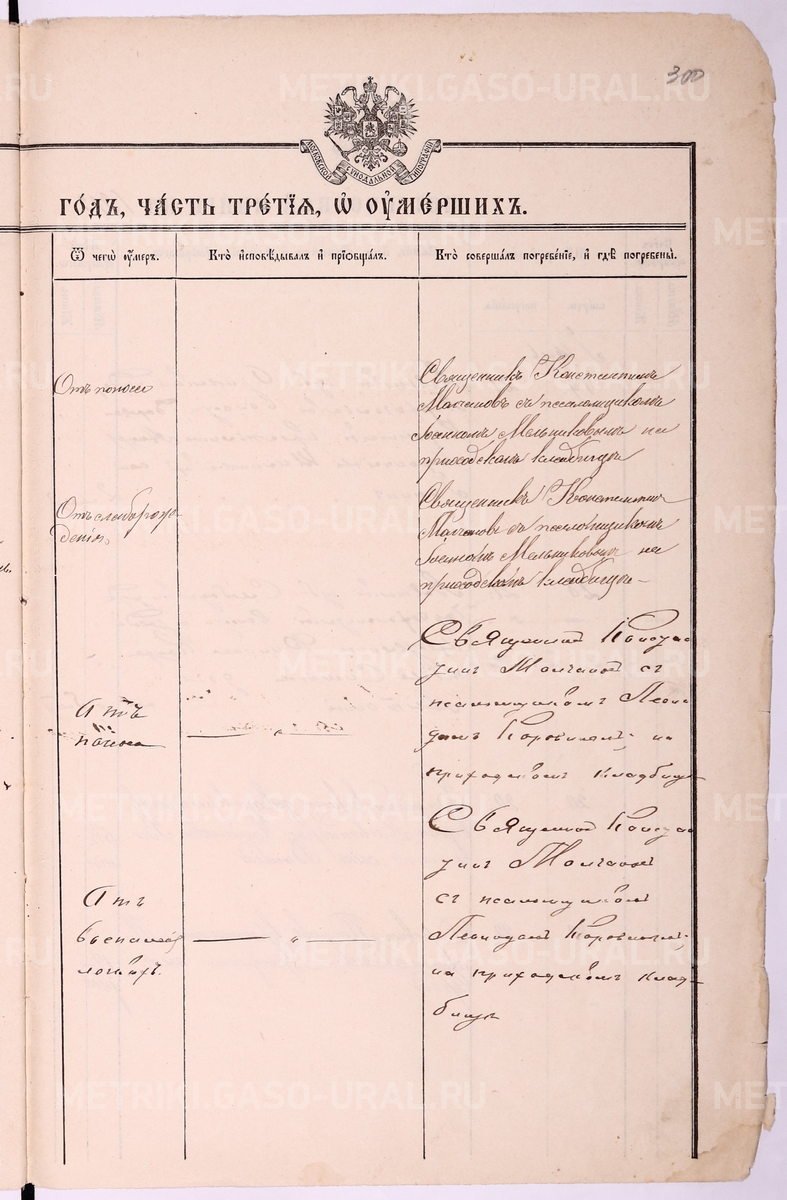 300
МОСКОВСКОЙ СѴНОДАЛЬНОЙ ТИПОГРАФІИ
ГО́ДЪ, ЧА́СТЬ ТРЕ́ТІѦ, Ѡ҆ ОУ҆МЕ́РШИХЪ.
Ѿ чегѡ̀ ᲂу҆́меръ.
Кто̀ и҆сповѣ́дывалъ и҆ прїѡбща́лъ.
Кто̀ соверша́лъ погребе́нїе, и҆ гдѣ̀ погребены̀.
Отъ поноса
Священникъ Константинъ
Молчановъ съ псаломщикомъ
Іоанномъ Мельниковымъ на
приходскомъ кладбищѣ
Отъ слаборож-
денія,
Священникъ Константинъ
Молчановъ съ псаломщикомъ
Іоанномъ Мельниковымъ на
приходскомъ кладбищѣ
Отъ
поноса
Священникъ Констан
тинъ Молчановъ съ
псаломщикомъ Леони
домъ на
приходскомъ кладбищѣ
Отъ
воспаленія
Священникъ Констан
тинъ Молчановъ
съ псаломщикомъ
Леонидомъ
на приходскомъ клад-
бищѣ
METRIKI.GASO-URAL.RU